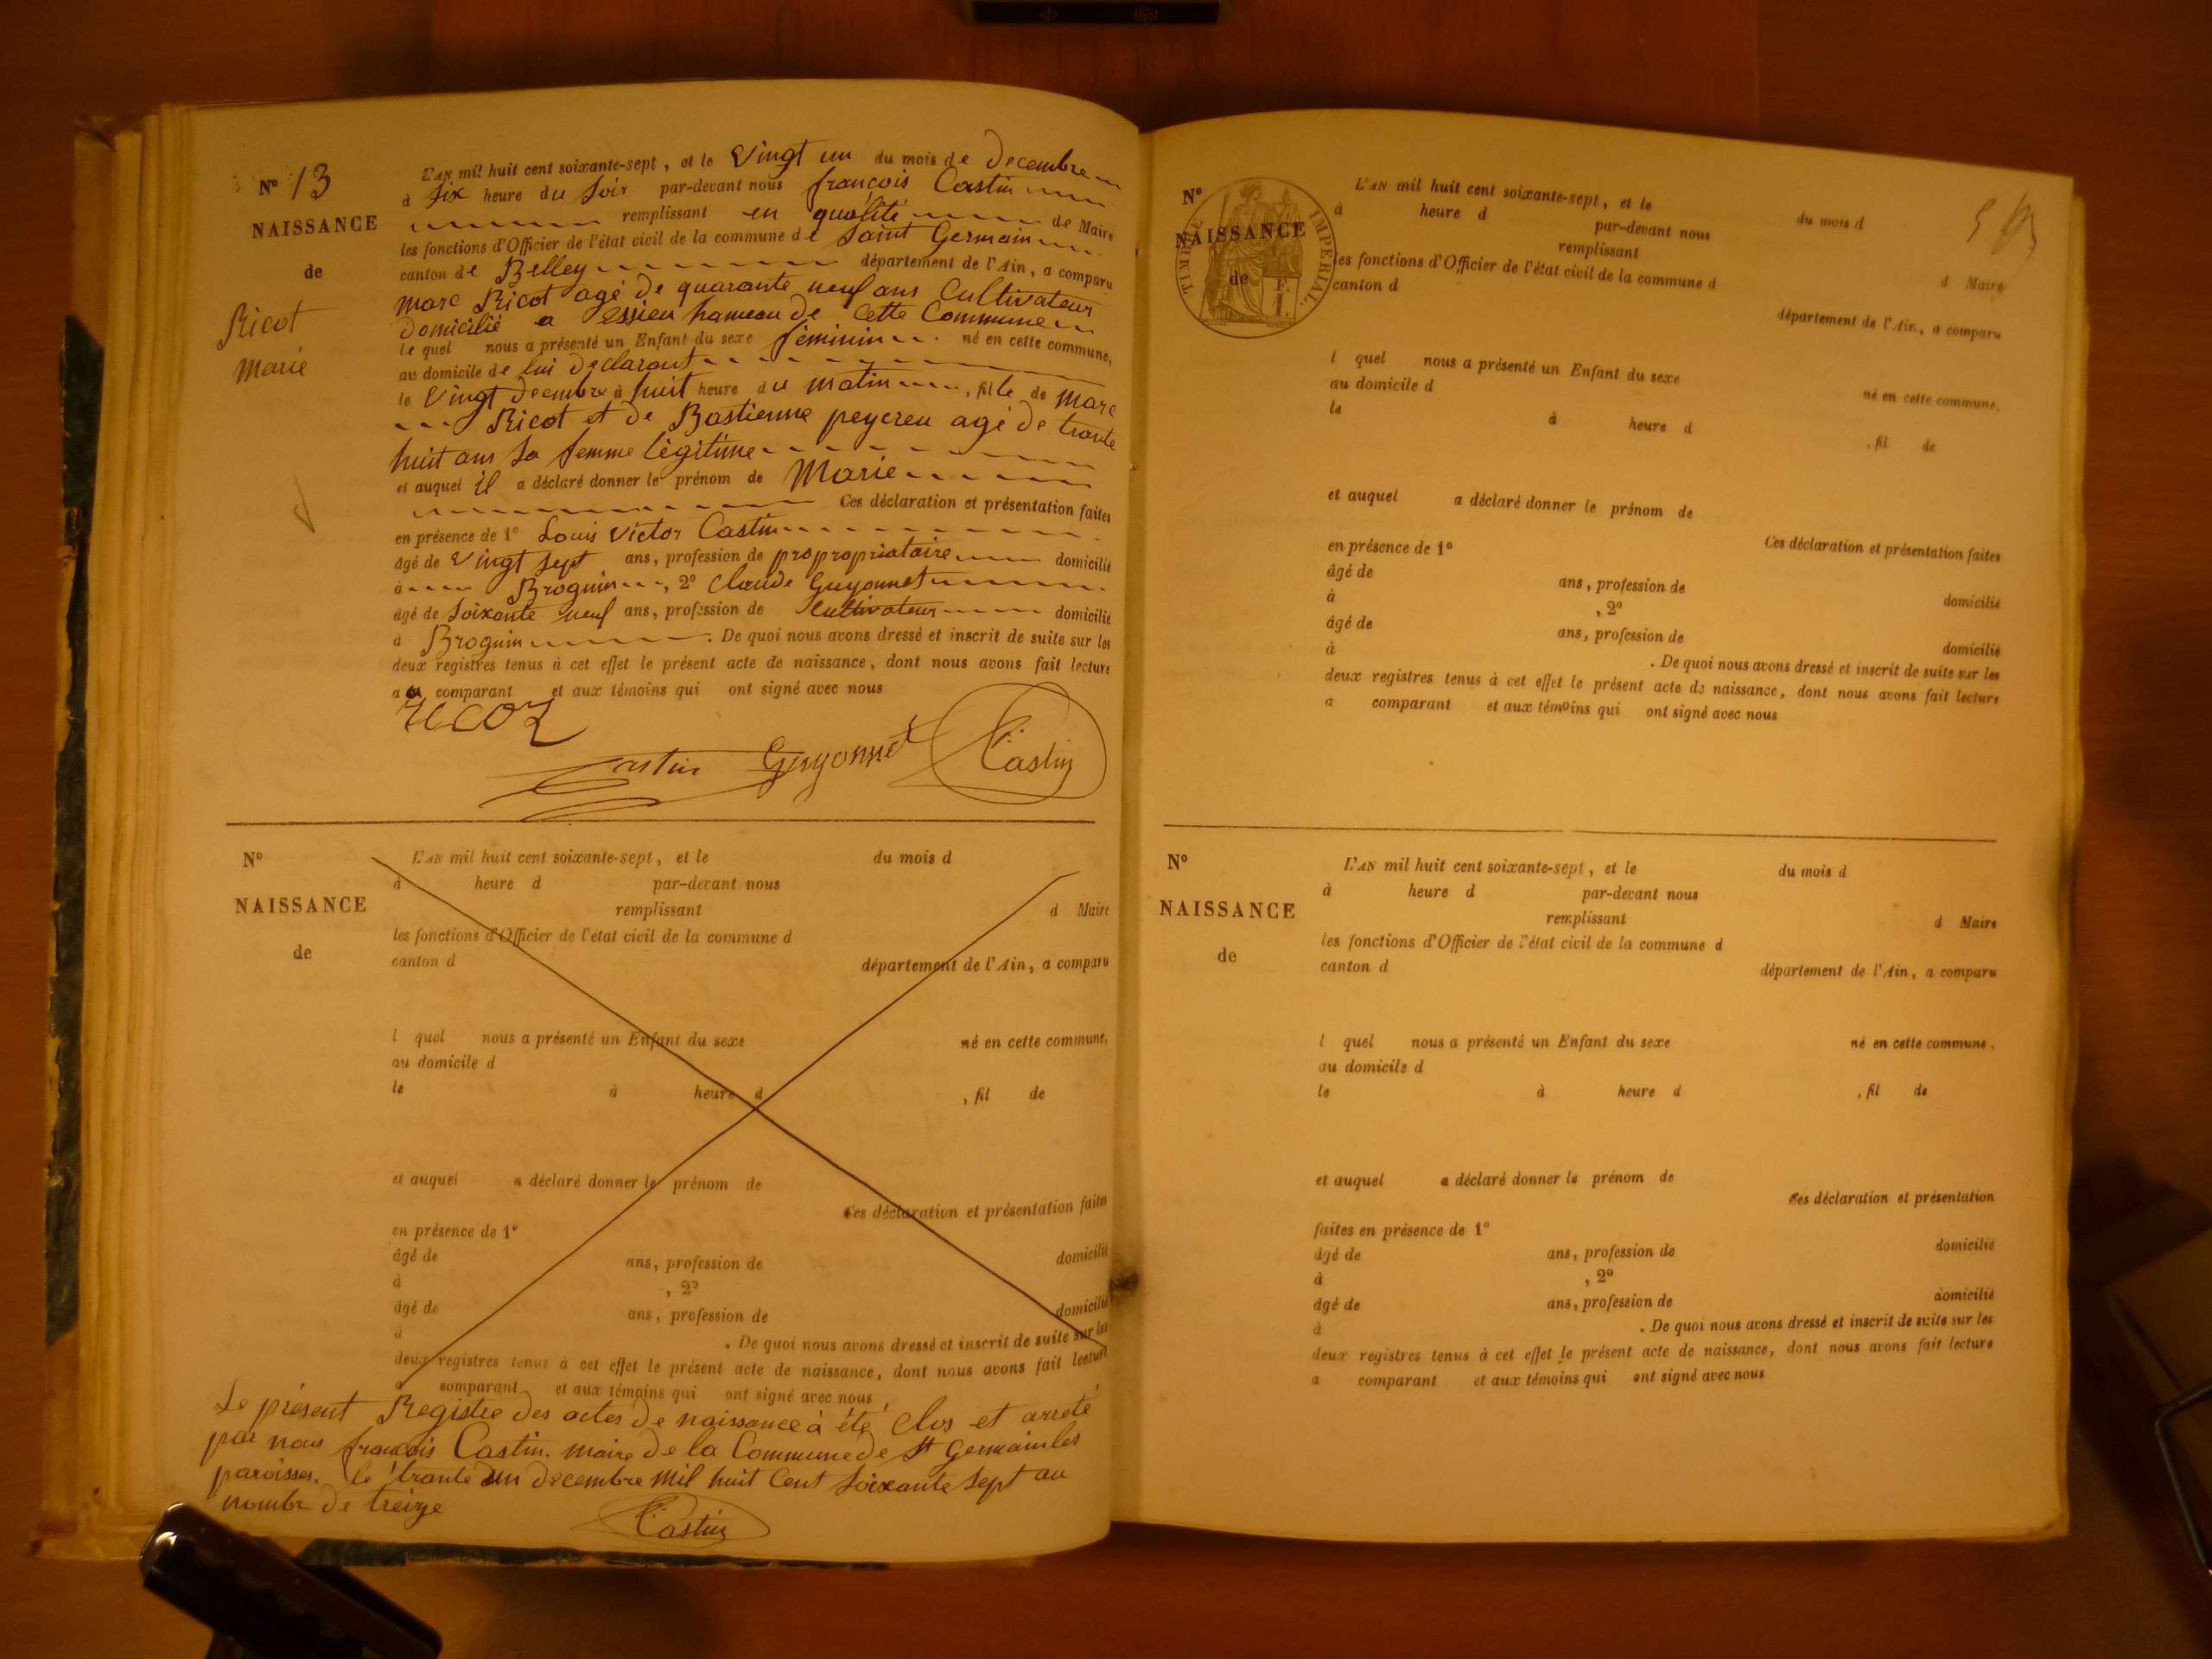 N° 13
NAISSANCE
de
Ricot
Marie
L'AN mil huit cent soixante-sept, et le Vingt un du mois de decembre
à six heure du soir par-devant nous françois Castin
remplissant en qualité de Maire
les fonctions d'Officier de l'état civil de la commune de Saint Germain
canton de Belley département de l'Ain, a comparu
Marc Ricot agé de quarante neuf ans Cultivateur
domicilié a essieu hameau de cette Commune
le quel nous a présenté un Enfant du sexe féminin né en cette commune,
au domicile de lui declarant
le Vingt decembre à huit heure du matin, fille de Marc
Ricot et de Bastienne peycreu agé de trante
huit ans sa femme légitime
et auquel il a déclaré donner le prénom de Marie
Ces déclaration et présentation faites
en présence de 1° Louis Victor Castin
âgé de Vingt sept ans, profession de propropriataire domicilié
à Brognin, 2° Claude Guyonnet
âgé de soixante neuf ans, profession de Cultivateur domicilié
à Brognin. De quoi nous avons dressé et inscrit de suite sur les
deux registres tenus à cet effet le présent acte de naissance, dont nous avons fait lecture
au comparant et aux témoins qui ont signé avec nous
Ricot
Castin Guyonnet Castin
N°
NAISSANCE
de
L'AN mil huit cent soixante-sept, et le du mois d
à heure d par-devant nous
remplissant d Maire
les fonctions d'Officier de l'état civil de la commune d
canton d département de l'Ain, a comparu
l quel nous a présenté un Enfant du sexe né en cette commune,
au domicile d
le à heure d , fil de
et auquel a déclaré donner le prénom de
Ces déclaration et présentation faites
en présence de 1°
âgé de ans, profession de domicilié
à , 2°
âgé de ans, profession de domicilié
à . De quoi nous avons dressé et inscrit de suite sur les
deux registres tenus à cet effet le présent acte de naissance, dont nous avons fait lecture
a comparant et aux témoins qui ont signé avec nous
Le présent Registre des actes de naissance à été clos et arreté
par nous françois Castin. maire de la Commune de St Germain les
paroisses. le trante un decembre mil huit Cent soixante sept au
nombre de treize
Castin
N°
NAISSANCE
de
TIMBRE IMPERIAL.
F.
1.
L'AN mil huit cent soixante-sept, et le du mois d
à heure d par-devant nous
remplissant d Maire
les fonctions d'Officier de l'état civil de la commune d
canton d département de l'Ain, a comparu
l quel nous a présenté un Enfant du sexe né en cette commune,
au domicile d
le à heure d , fil de
et auquel a déclaré donner le prénom de
Ces déclaration et présentation faites
en présence de 1°
âgé de ans, profession de domicilié
à , 2°
âgé de ans, profession de domicilié
à . De quoi nous avons dressé et inscrit de suite sur les
deux registres tenus à cet effet le présent acte de naissance, dont nous avons fait lecture
a comparant et aux témoins qui ont signé avec nous
N°
NAISSANCE
de
L'AN mil huit cent soixante-sept, et le du mois d
à heure d par-devant nous
remplissant d Maire
les fonctions d'Officier de l'état civil de la commune d
canton d département de l'Ain, a comparu
l quel nous a présenté un Enfant du sexe né en cette commune,
au domicile d
le à heure d , fil de
et auquel a déclaré donner le prénom de
Ces déclaration et présentation
faites en présence de 1°
âgé de ans, profession de domicilié
à , 2°
âgé de ans, profession de domicilié
à . De quoi nous avons dressé et inscrit de suite sur les
deux registres tenus à cet effet le présent acte de naissance, dont nous avons fait lecture
a comparant et aux témoins qui ont signé avec nous